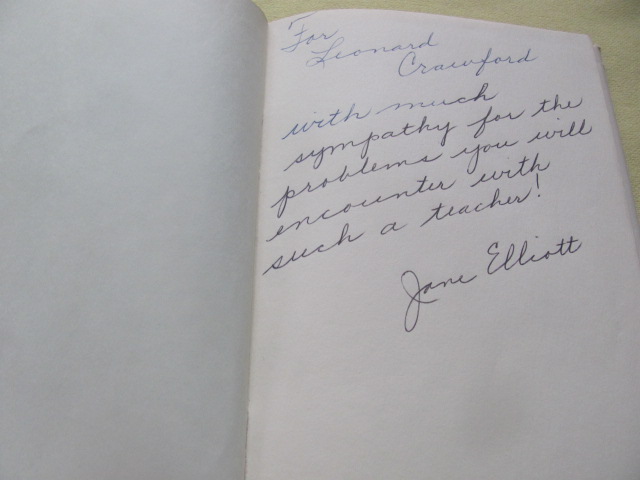 For
Leonard
Crawford
with much
sympathy for the
problems you will
encounter with
such a teacher!
Jane Elliott